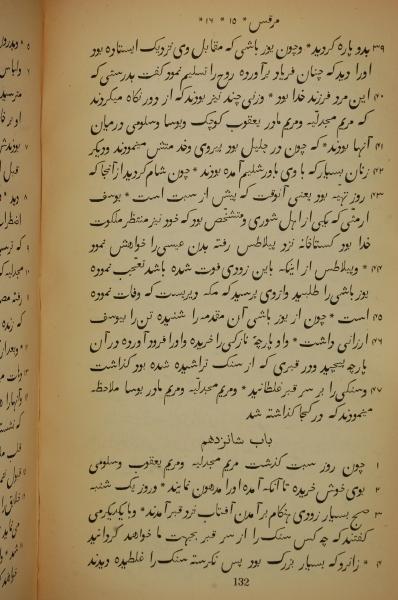 مرقس * ۱۵ * ۱۶ *
۳۹ بدو پاره گردید * وچون یوز باشی که مقابل وی نزدیک ایستاده بود
اورا دید که چنان فریاد برآورده روح را تسلیم نمود گفت بدرستی که
۴۰ این مرد فرزند خدا بود * وزنی چند نیز بودند که از دور نگاه میکردند
که مریم مجدلیّه ومریم مادر یعقوب کوچک ویوسا وسلومی درمیان
۴۱ آنها بودند * که چون در جلیل بود پیروی وخدمتش مینمودند ودیگر
۴۲ زنان بسیار که با وی باورشلیم آمده بودند * چون شام گردید از آنجا که
۴۳ روز تهیه بود یعنی آنوقت که پیش از سبت است * یوسف
ارمثی که یکی از اهل شوری ومتشخّص بود که خود نیز منتظر ملکوت
خدا بود گستاخانه نزد پیلاطس رفته بدن عیسی را خواهش نمود
۴۴ * وپیلاطس از اینکه باین زودی فوت شده باشد تعجّب نموده
یوز باشی را طلبید وازوی پرسید که مکه دیریست که وفات نموده
۴۵ است * چون از یوز باشی آن مقدمه را شنیده تن را بیوسف
۴۶ ارزانی داشت * واو پارچهٔ نازکی را خریده واورا فرود آورده در آن
پارچه پیچید ودر قبری که از سنک تراشیده شده بود گذاشت
۴۷ وسنکی را بر سر قبر غلطانید * ومریم مجدلیّه ومریم مادر یوسا ملاحظه
مینمودند که در کجا گذاشته شد
باب شانزدهم
۱ چون روز سبت گذشت مریم مجدلیه ومریم یعقوب وسلومی
۲ بوی خوش خریده تا آنکه آمده اورا مدهون نمایند * وروز یک شنبه
۳ صبح بسیار زودی هنکام برآمدن آفتاب نزد قبر آمدند * وبا یکدیکر می
گفتند که چه کس سنک را از سر قبر بجهت ما خواهد گردانید
۴ * زانرو که بسیار بزرک بود پس نکرسته سنک را غلطیده دیدند
132